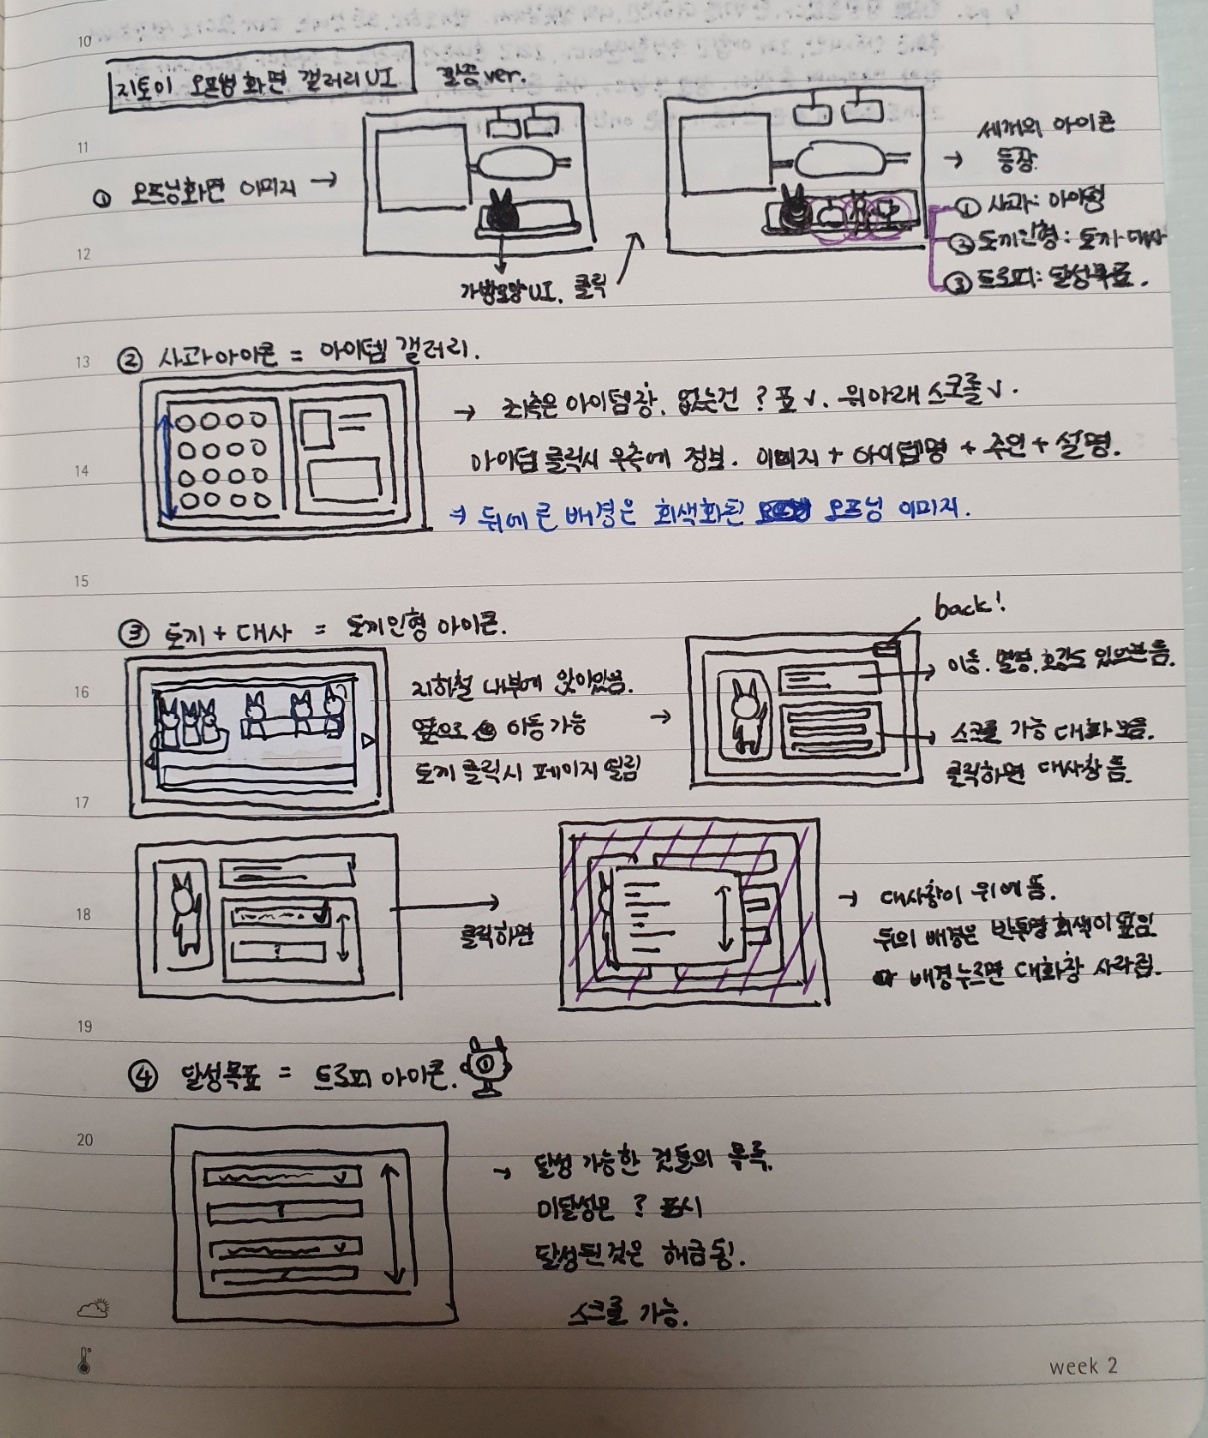 10
지토이 오프닝화면 갤러리 UI 깔끔ver.
11
① 오프닝화면 이미지 →
→ 세개의 아이콘
등장.
① 사과: 아이템
② 토끼인형: 토끼·대사
③ 트로피: 달성목표.
12
가방모양UI, 클릭
13
② 사과아이콘 = 아이템 갤러리.
→ 좌측은 아이템창, 없는건 ? 표 v. 위아래 스크롤 v.
14
아이템 클릭시 우측에 정보. 이미지 + 아이템명 + 주인 + 설명.
⇒ 뒤에 큰 배경은 회색화된 오프닝 이미지.
15
③ 토끼 + 대사 = 토끼인형 아이콘.
back!
16
지하철 내부에 앉아있음.
옆으로 이동 가능 →
토끼 클릭시 페이지 열림
이름, 별명, 호감도 있으면 뜸.
스크롤 가능 대화 모음.
클릭하면 대사창 뜸.
17
?
18
클릭하면
→ 대사창이 위에 뜸.
뒤의 배경은 반투명 회색이 덮임
배경누르면 대화창 사라짐.
19
④ 달성목표 = 트로피 아이콘.
①
20
→ 달성 가능한 것들의 목록.
미달성은 ? 표시
달성된것은 해금됨!
스크롤 가능.
week 2